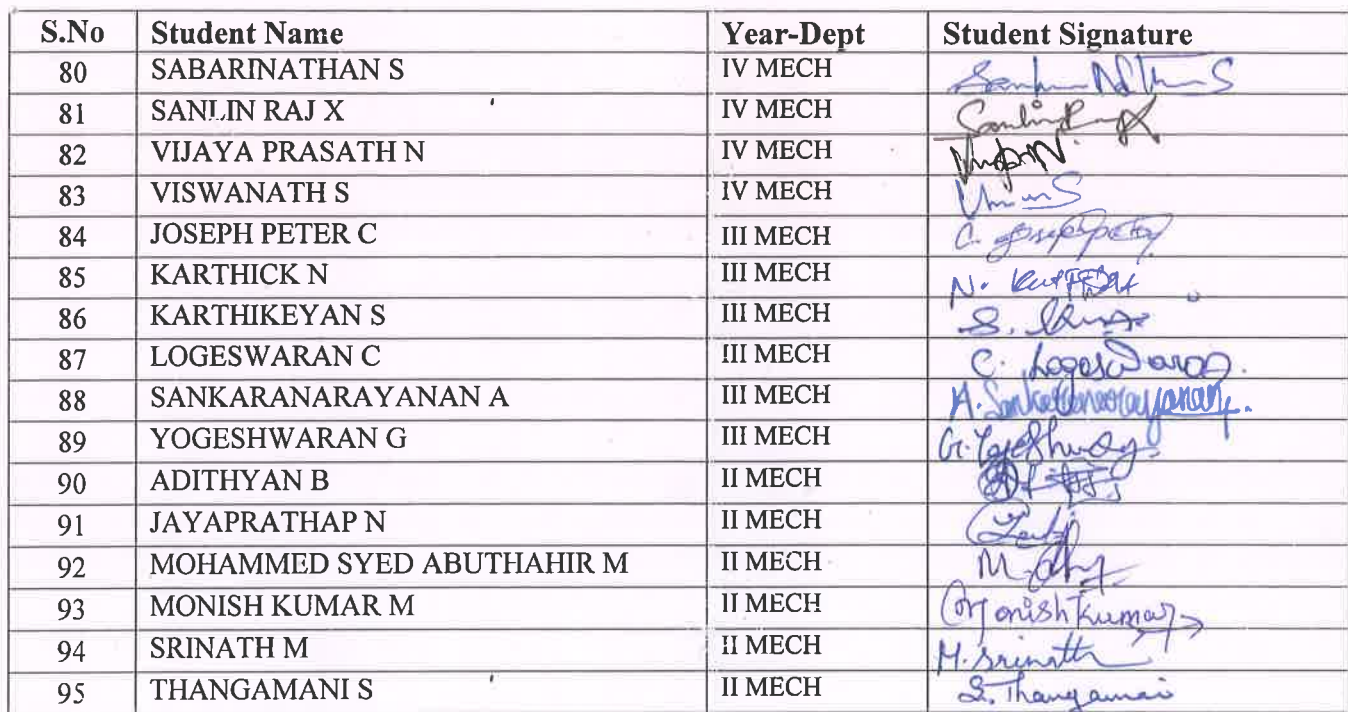 S.No Student Name Year-Dept Student Signature
80 SABARINATHAN S IV MECH
81 SANLIN RAJ X IV MECH
82 VIJAYA PRASATH N IV MECH
83 VISWANATH S IV MECH
84 JOSEPH PETER C III MECH
85 KARTHICK N III MECH N.
86 KARTHIKEYAN S III MECH S.
87 LOGESWARAN C III MECH C. Logeswaran.
88 SANKARANARAYANAN A III MECH A. Sankaranarayanan
89 YOGESHWARAN G III MECH
90 ADITHYAN B II MECH
91 JAYAPRATHAP N II MECH
92 MOHAMMED SYED ABUTHAHIR M II MECH
93 MONISH KUMAR M II MECH Monish Kumar
94 SRINATH M II MECH M. Srinath
95 THANGAMANI S II MECH S. Thangamani